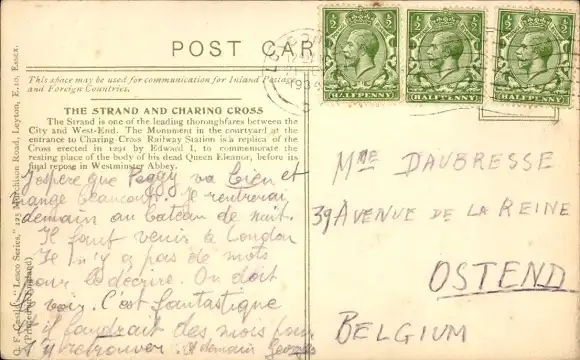 POST CAR
This space may be used for communication for Inland Postage
and Foreign Countries.
THE STRAND AND CHARING CROSS
The Strand is one of the leading thoroughfares between the
City and West-End. The Monument in the courtyard at the
entrance to Charing Cross Railway Station is a replica of the
Cross erected in 1291 by Edward I, to commemorate the
resting place of the body of his dead Queen Eleanor, before its
final repose in Westminster Abbey.
J'espère que Peggy va bien et
mange beaucoup. Je rentrerai
demain au bateau de nuit.
Il faut venir à London
Il n'y a pas de mots
pour le décrire. On doit
le voir. C'est fantastique
il faudrait des mois pour
s'y retrouver. à demain Georges
½ ½
HALFPENNY
½ ½
HALFPENNY
½ ½
HALFPENNY
MME DAUBRESSE
39 AVENUE DE LA REINE
OSTEND
BELGIUM
"Lesco Series," Road, Leyton, E.10, Essex.